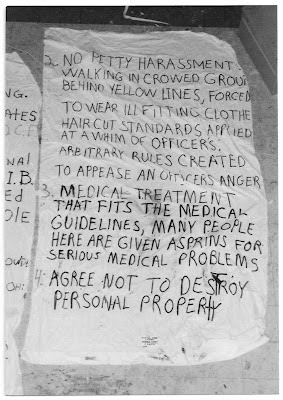 NG.
ATES
O.C.F
nal
I.B.
ed
ple.
2. NO PETTY HARASSMENT
WALKING IN CROWED GROUP
BEHIND YELLOW LINES, FORCED
TO WEAR ILL FITTING CLOTHE
HAIR CUT STANDARDS APPLIED
AT A WHIM OF OFFICERS.
ARBITRARY RULES CREATED
TO APPEASE AN OFFICERS ANGER
3. MEDICAL TREATMENT
THAT FITS THE MEDICAL
GUIDELINES, MANY PEOPLE
HERE ARE GIVEN ASPRINS FOR
SERIOUS MEDICAL PROBLEMS
4. AGREE NOT TO DESTROY
PERSONAL PROPERTY